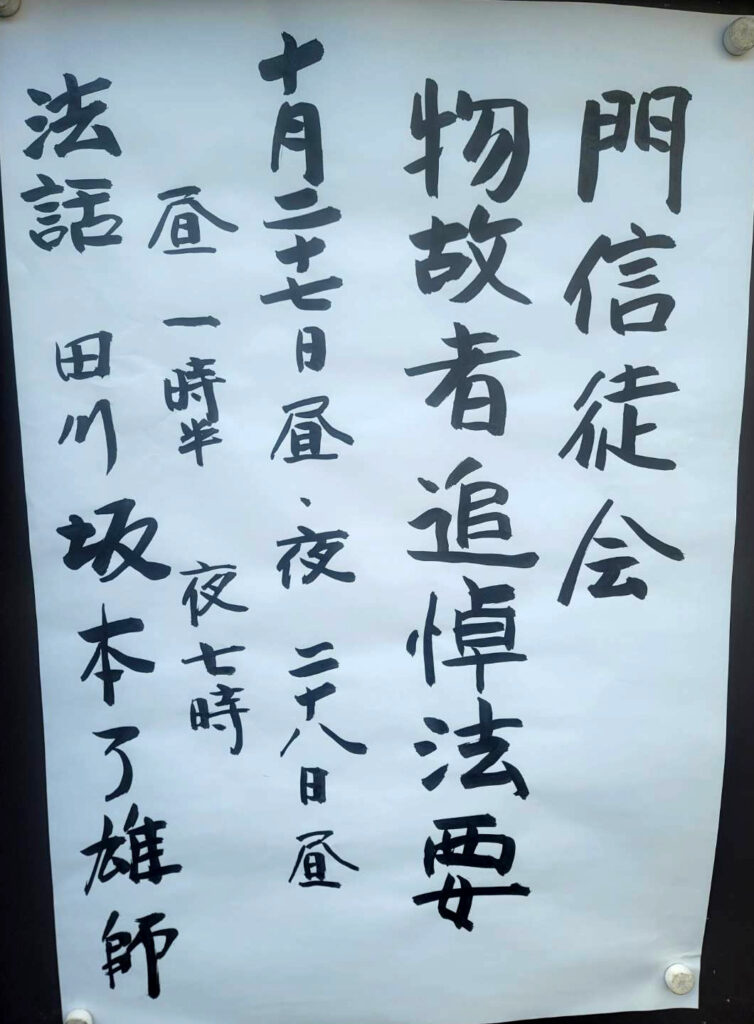 門信徒会
物故者追悼法要
十月二十七日昼・夜 二十八日昼
昼 一時半 夜七時
法話 田川 坂本了雄師